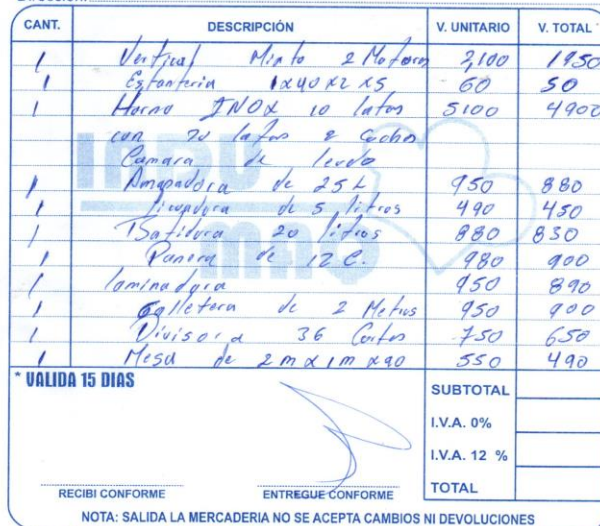 CANT. DESCRIPCIÓN V. UNITARIO V. TOTAL
1 Vertical Mixto 2 Motores 2,100 1950
1 Estanteria 1x40x2x5 60 50
1 Horno INOX 10 latas 5100 4900
con 20 latas 2 Coches
Camara de leudo
1 Amasadora de 25 L 950 880
1 licuadora de 5 litros 490 450
1 Batidora 20 litros 880 830
1 Panera de 12 C. 980 900
1 laminadora 950 890
1 Galletera de 2 Metros 950 900
1 Divisora 36 Cortes 750 650
1 Mesa de 2m x 1m x 90 550 490
INDU
MAQ
* VALIDA 15 DIAS
SUBTOTAL
I.V.A. 0%
I.V.A. 12 %
TOTAL
RECIBI CONFORME ENTREGUE CONFORME
NOTA: SALIDA LA MERCADERIA NO SE ACEPTA CAMBIOS NI DEVOLUCIONES